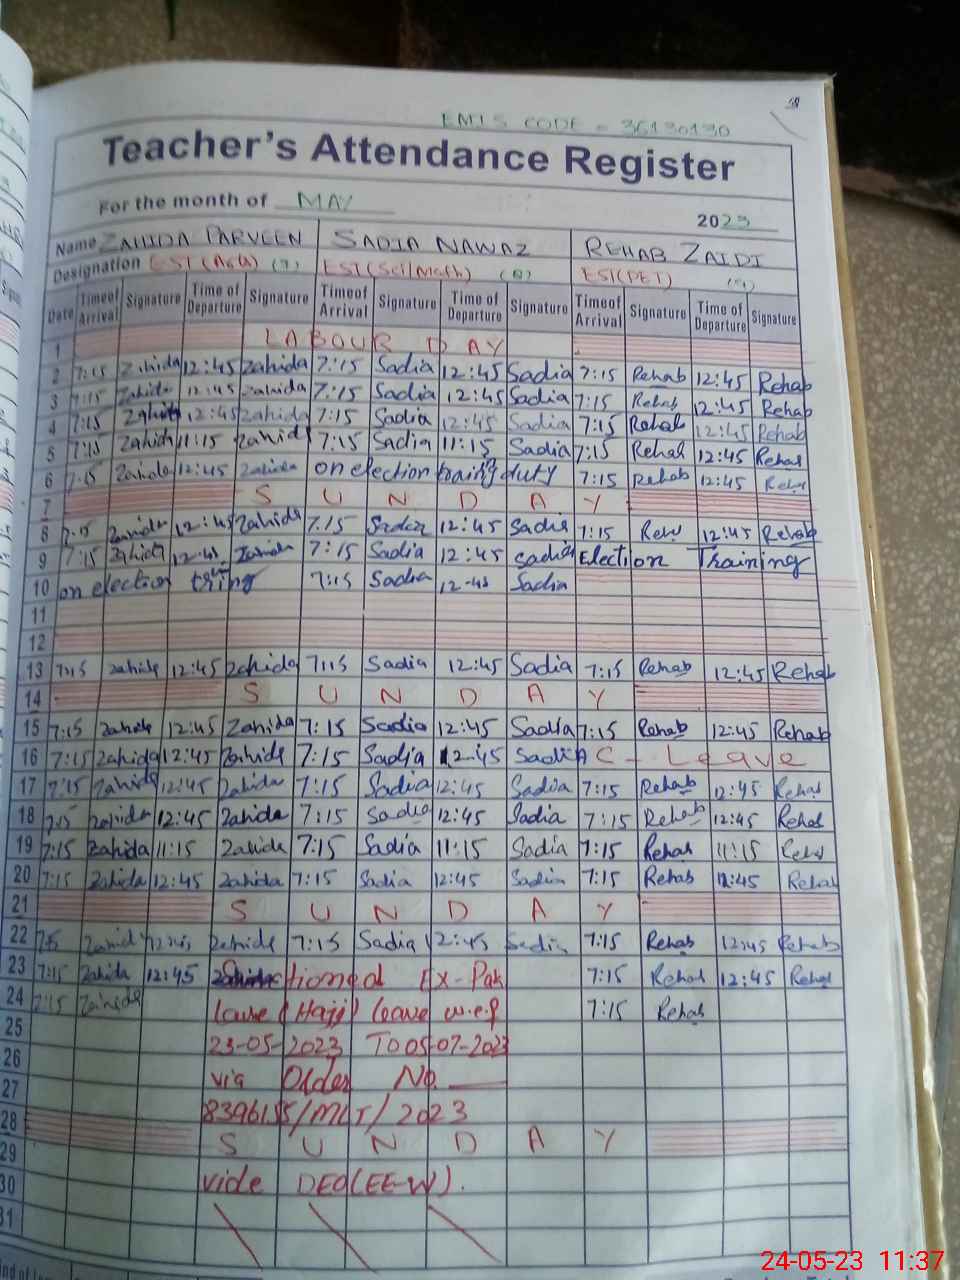 EMIS CODE = 36130130
Teacher's Attendance Register
For the month of MAY 2023
Name ZAHIDA PARVEEN SADIA NAWAZ REHAB ZAIDI
Designation EST(A&G) (7) EST(Sci/Math) (8) EST(PET) (9)
Date Time of Arrival Signature Time of Departure Signature Time of Arrival Signature Time of Departure Signature Time of Arrival Signature Time of Departure Signature
1 LABOUR DAY
2 7:15 Zahida 12:45 Zahida 7:15 Sadia 12:45 Sadia 7:15 Rehab 12:45 Rehab
3 7:15 Zahida 12:45 Zahida 7:15 Sadia 12:45 Sadia 7:15 Rehab 12:45 Rehab
4 7:15 Zahida 12:45 Zahida 7:15 Sadia 12:45 Sadia 7:15 Rehab 12:45 Rehab
5 7:15 Zahida 11:15 Zahida 7:15 Sadia 11:15 Sadia 7:15 Rehab 12:45 Rehab
6 7:15 Zahida 12:45 Zahida on election training duty 7:15 Rehab 12:45 Rehab
7 SUNDAY
8 7:15 Zahida 12:45 Zahida 7:15 Sadia 12:45 Sadia 7:15 Rehab 12:45 Rehab
9 7:15 Zahida 12:45 Zahida 7:15 Sadia 12:45 Sadia Election Training
10 on election tring 7:15 Sadia 12:45 Sadia
11
12
13 7:15 Zahida 12:45 Zahida 7:15 Sadia 12:45 Sadia 7:15 Rehab 12:45 Rehab
14 SUNDAY
15 7:15 Zahida 12:45 Zahida 7:15 Sadia 12:45 Sadia 7:15 Rehab 12:45 Rehab
16 7:15 Zahida 12:45 Zahida 7:15 Sadia 12:45 Sadia C-Leave
17 7:15 Zahida 12:45 Zahida 7:15 Sadia 12:45 Sadia 7:15 Rehab 12:45 Rehab
18 7:15 Zahida 12:45 Zahida 7:15 Sadia 12:45 Sadia 7:15 Rehab 12:45 Rehab
19 7:15 Zahida 11:15 Zahida 7:15 Sadia 11:15 Sadia 7:15 Rehab 11:15 Rehab
20 7:15 Zahida 12:45 Zahida 7:15 Sadia 12:45 Sadia 7:15 Rehab 12:45 Rehab
21 SUNDAY
22 7:15 Zahida 12:45 Zahida 7:15 Sadia 12:45 Sadia 7:15 Rehab 12:45 Rehab
23 7:15 Zahida 12:45 Zahida Sanctioned Ex-Pak 7:15 Rehab 12:45 Rehab
24 7:15 Zahida Leave (Hajj) leave w.e.f 7:15 Rehab
25 23-05-2023 TO 05-07-2023
26 via Older No.
27 8396155/MLT/2023
28 SUNDAY
29
30 vide DEO(EE-W).
31
24-05-23 11:37